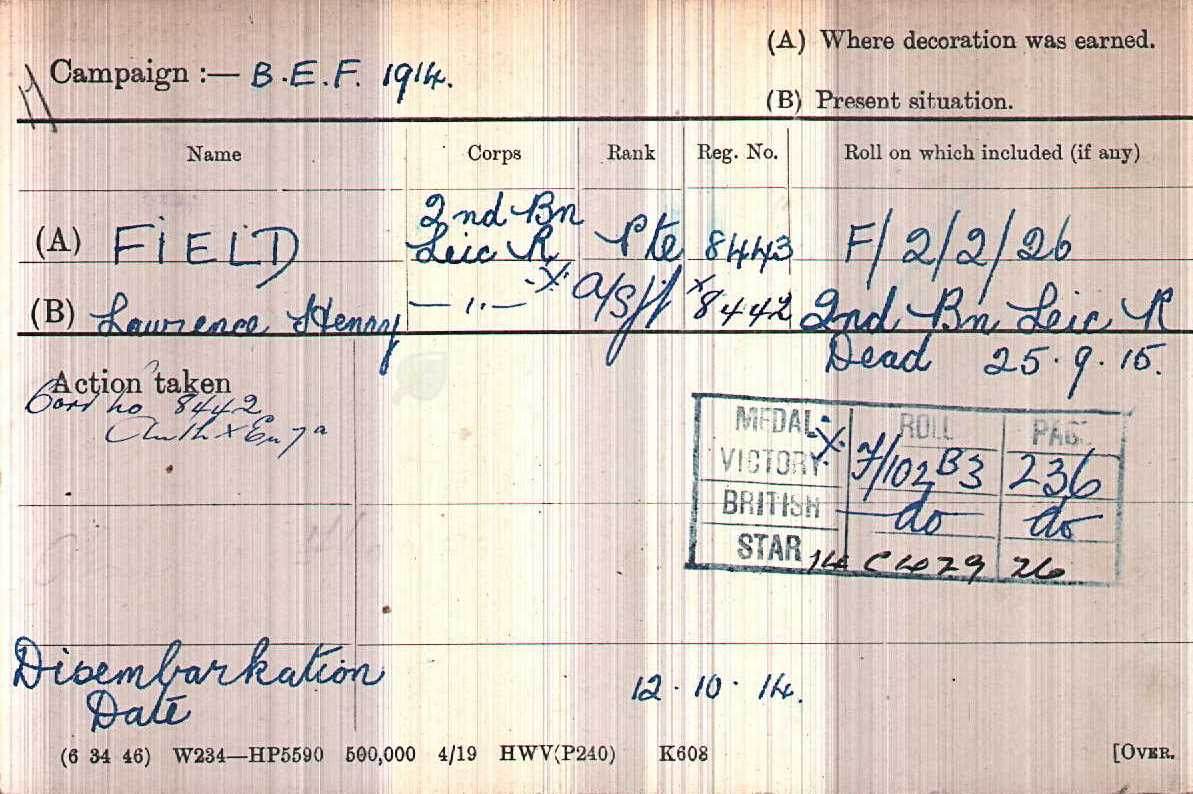 Campaign :— B.E.F. 1914.
(A) Where decoration was earned.
(B) Present situation.
Name Corps Rank Reg. No. Roll on which included (if any)
(A) FIELD 2nd Bn Leic R Pte 8443 F/2/2/26
(B) Lawrence Henry — " — X A/Sjt X 8442 2nd Bn Leic R
Dead 25.9.15.
Action taken
Corr no 8442
Auth X
MEDAL ROLL PAGE
VICTORY X F/102 B3 236
BRITISH do do
STAR 14 C 429 26
Disembarkation
Date
12.10.14.
(6 34 46) W234—HP5590 500,000 4/19 HWV(P240) K608 [OVER.